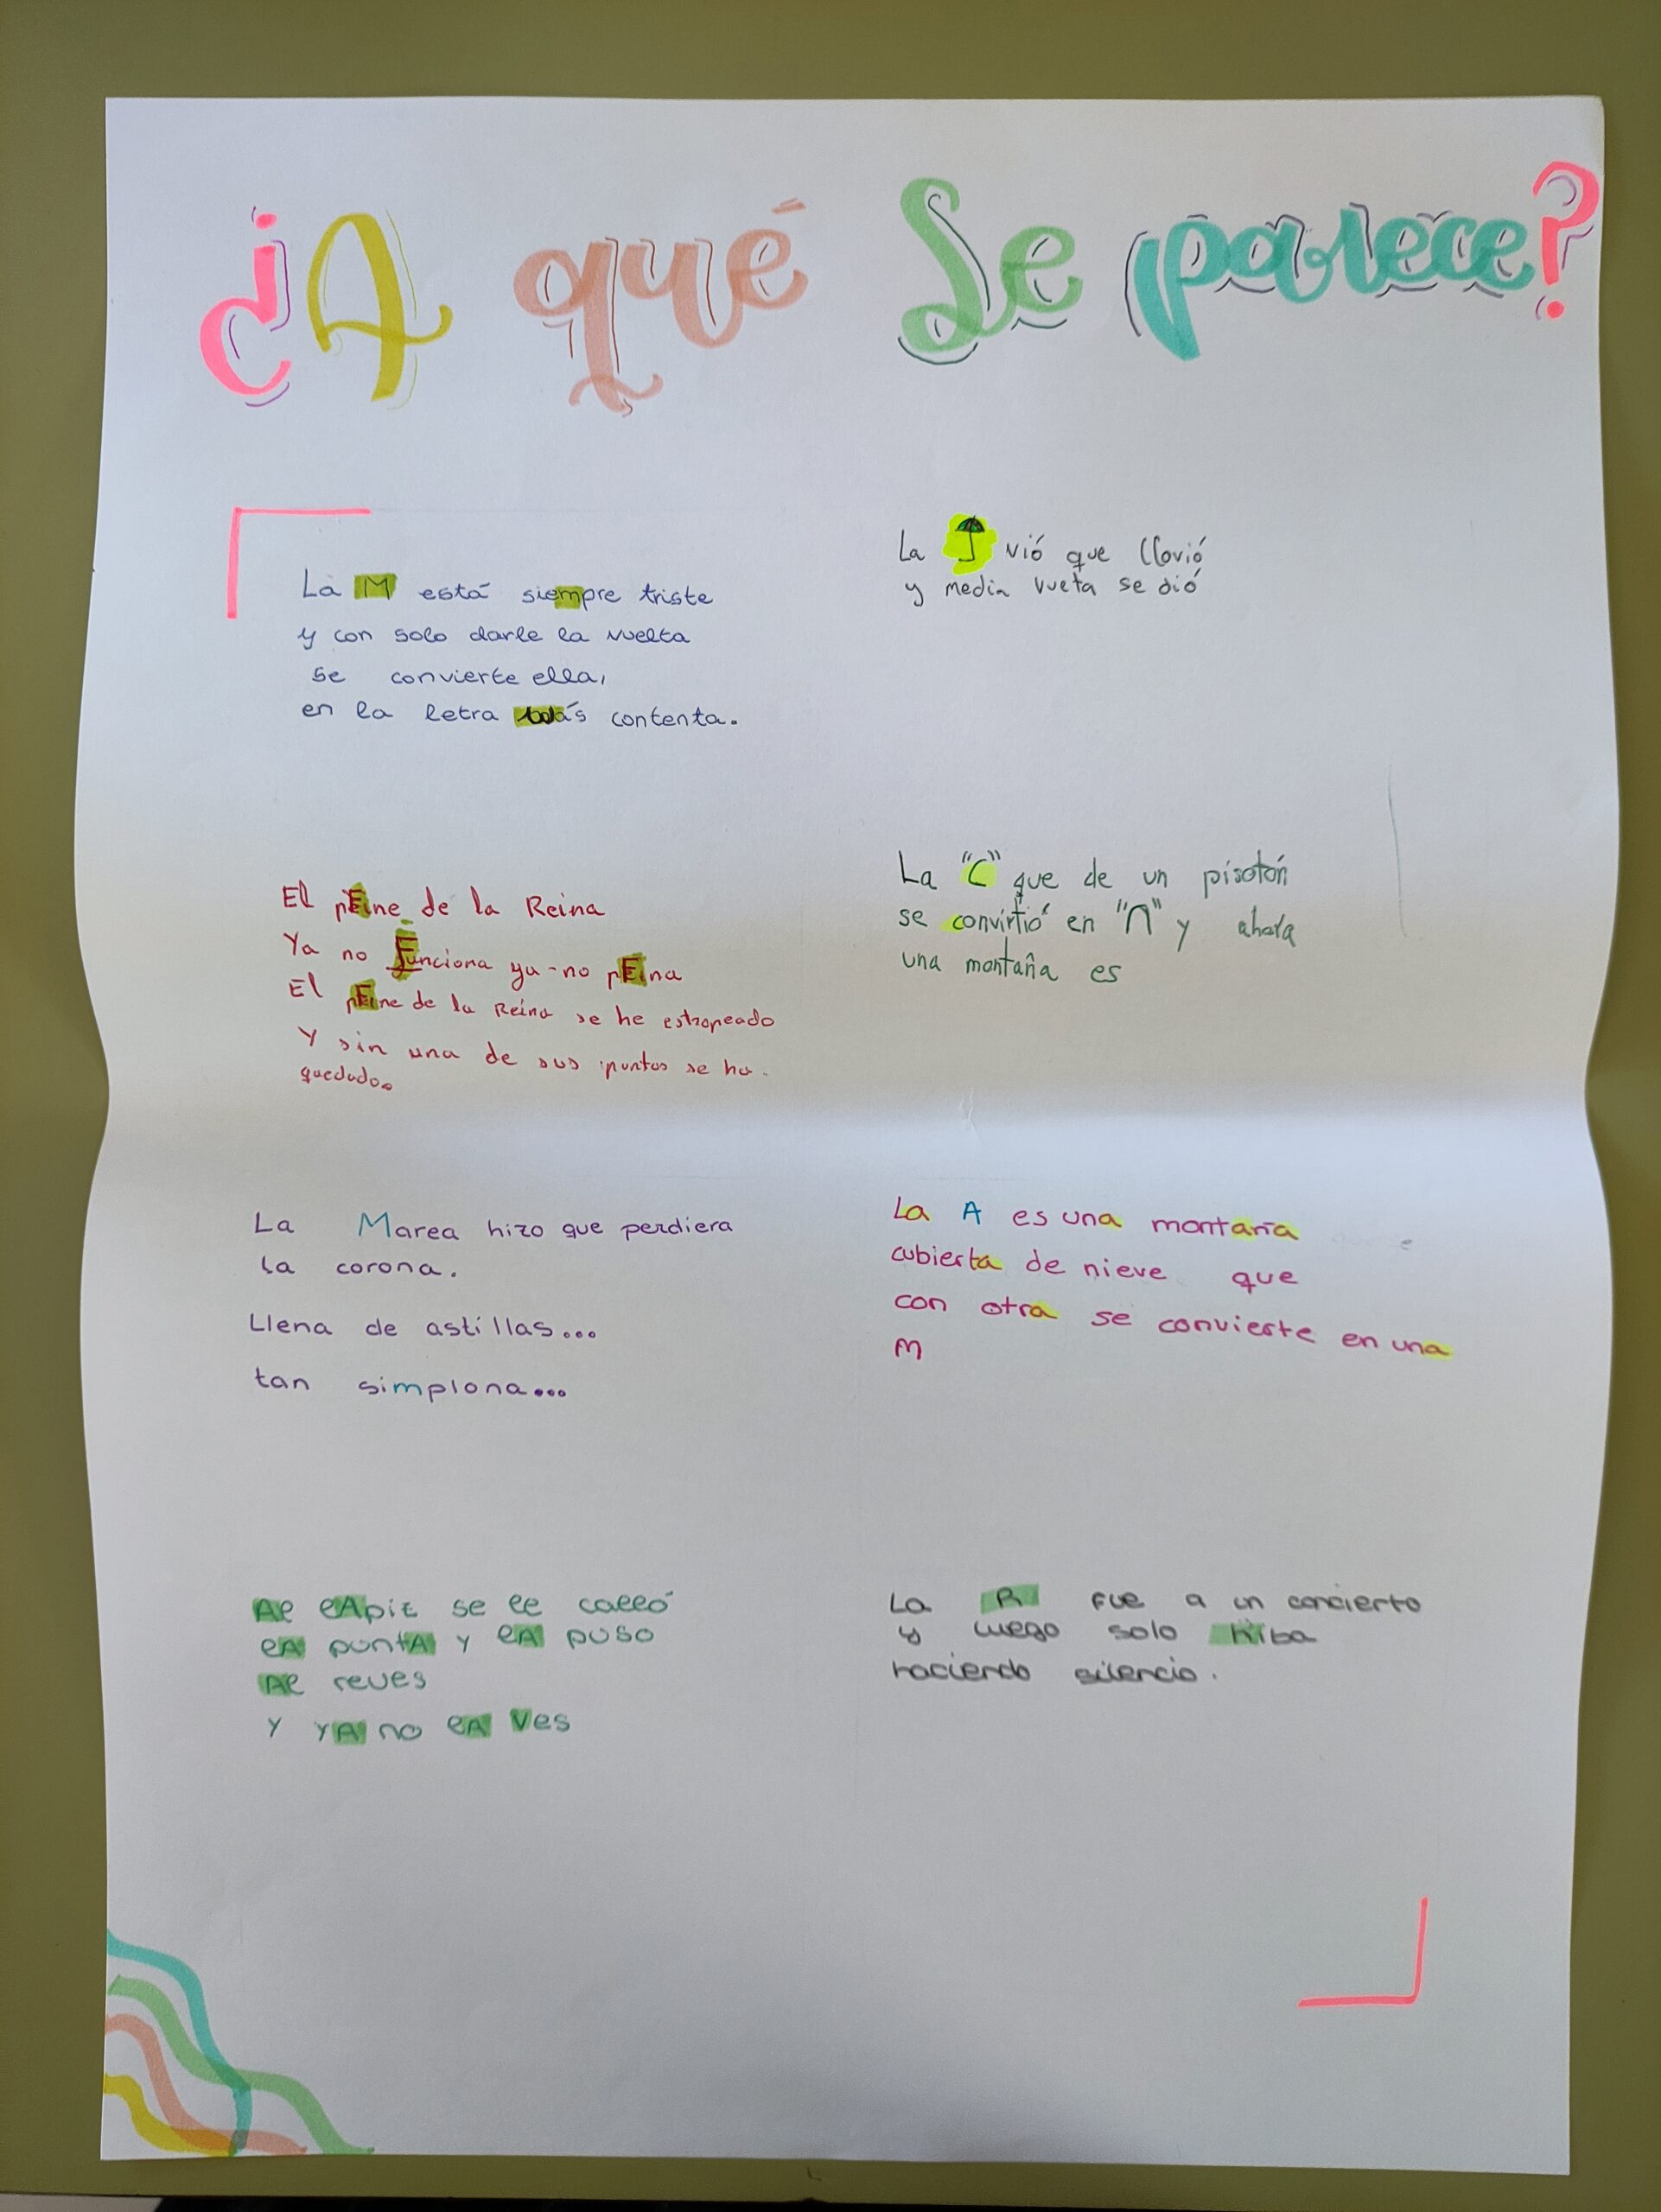 ¿A qué Se parece?
La M está siempre triste
y con solo darle la vuelta
se convierte ella,
en la letra contenta.
La vió que llovió
y media vuelta se dió
El pEine de la Reina
Ya no Funciona ya no pEina
El pEine de la Reina se he estropeado
Y sin una de sus puntas se ha
quedado.
La "C" que de un pisotón
se convirtió en "n" y ahora
una montaña es
La Marea hizo que perdiera
la corona.
Llena de astillas...
tan simplona...
La A es una montaña
cubierta de nieve que
con otra se convierte en una
M
Al lApiz se le calló
lA puntA y lA puso
Al reves
Y YA no lA Ves
La R fue a un concierto
y luego solo hiba
haciendo silencio.